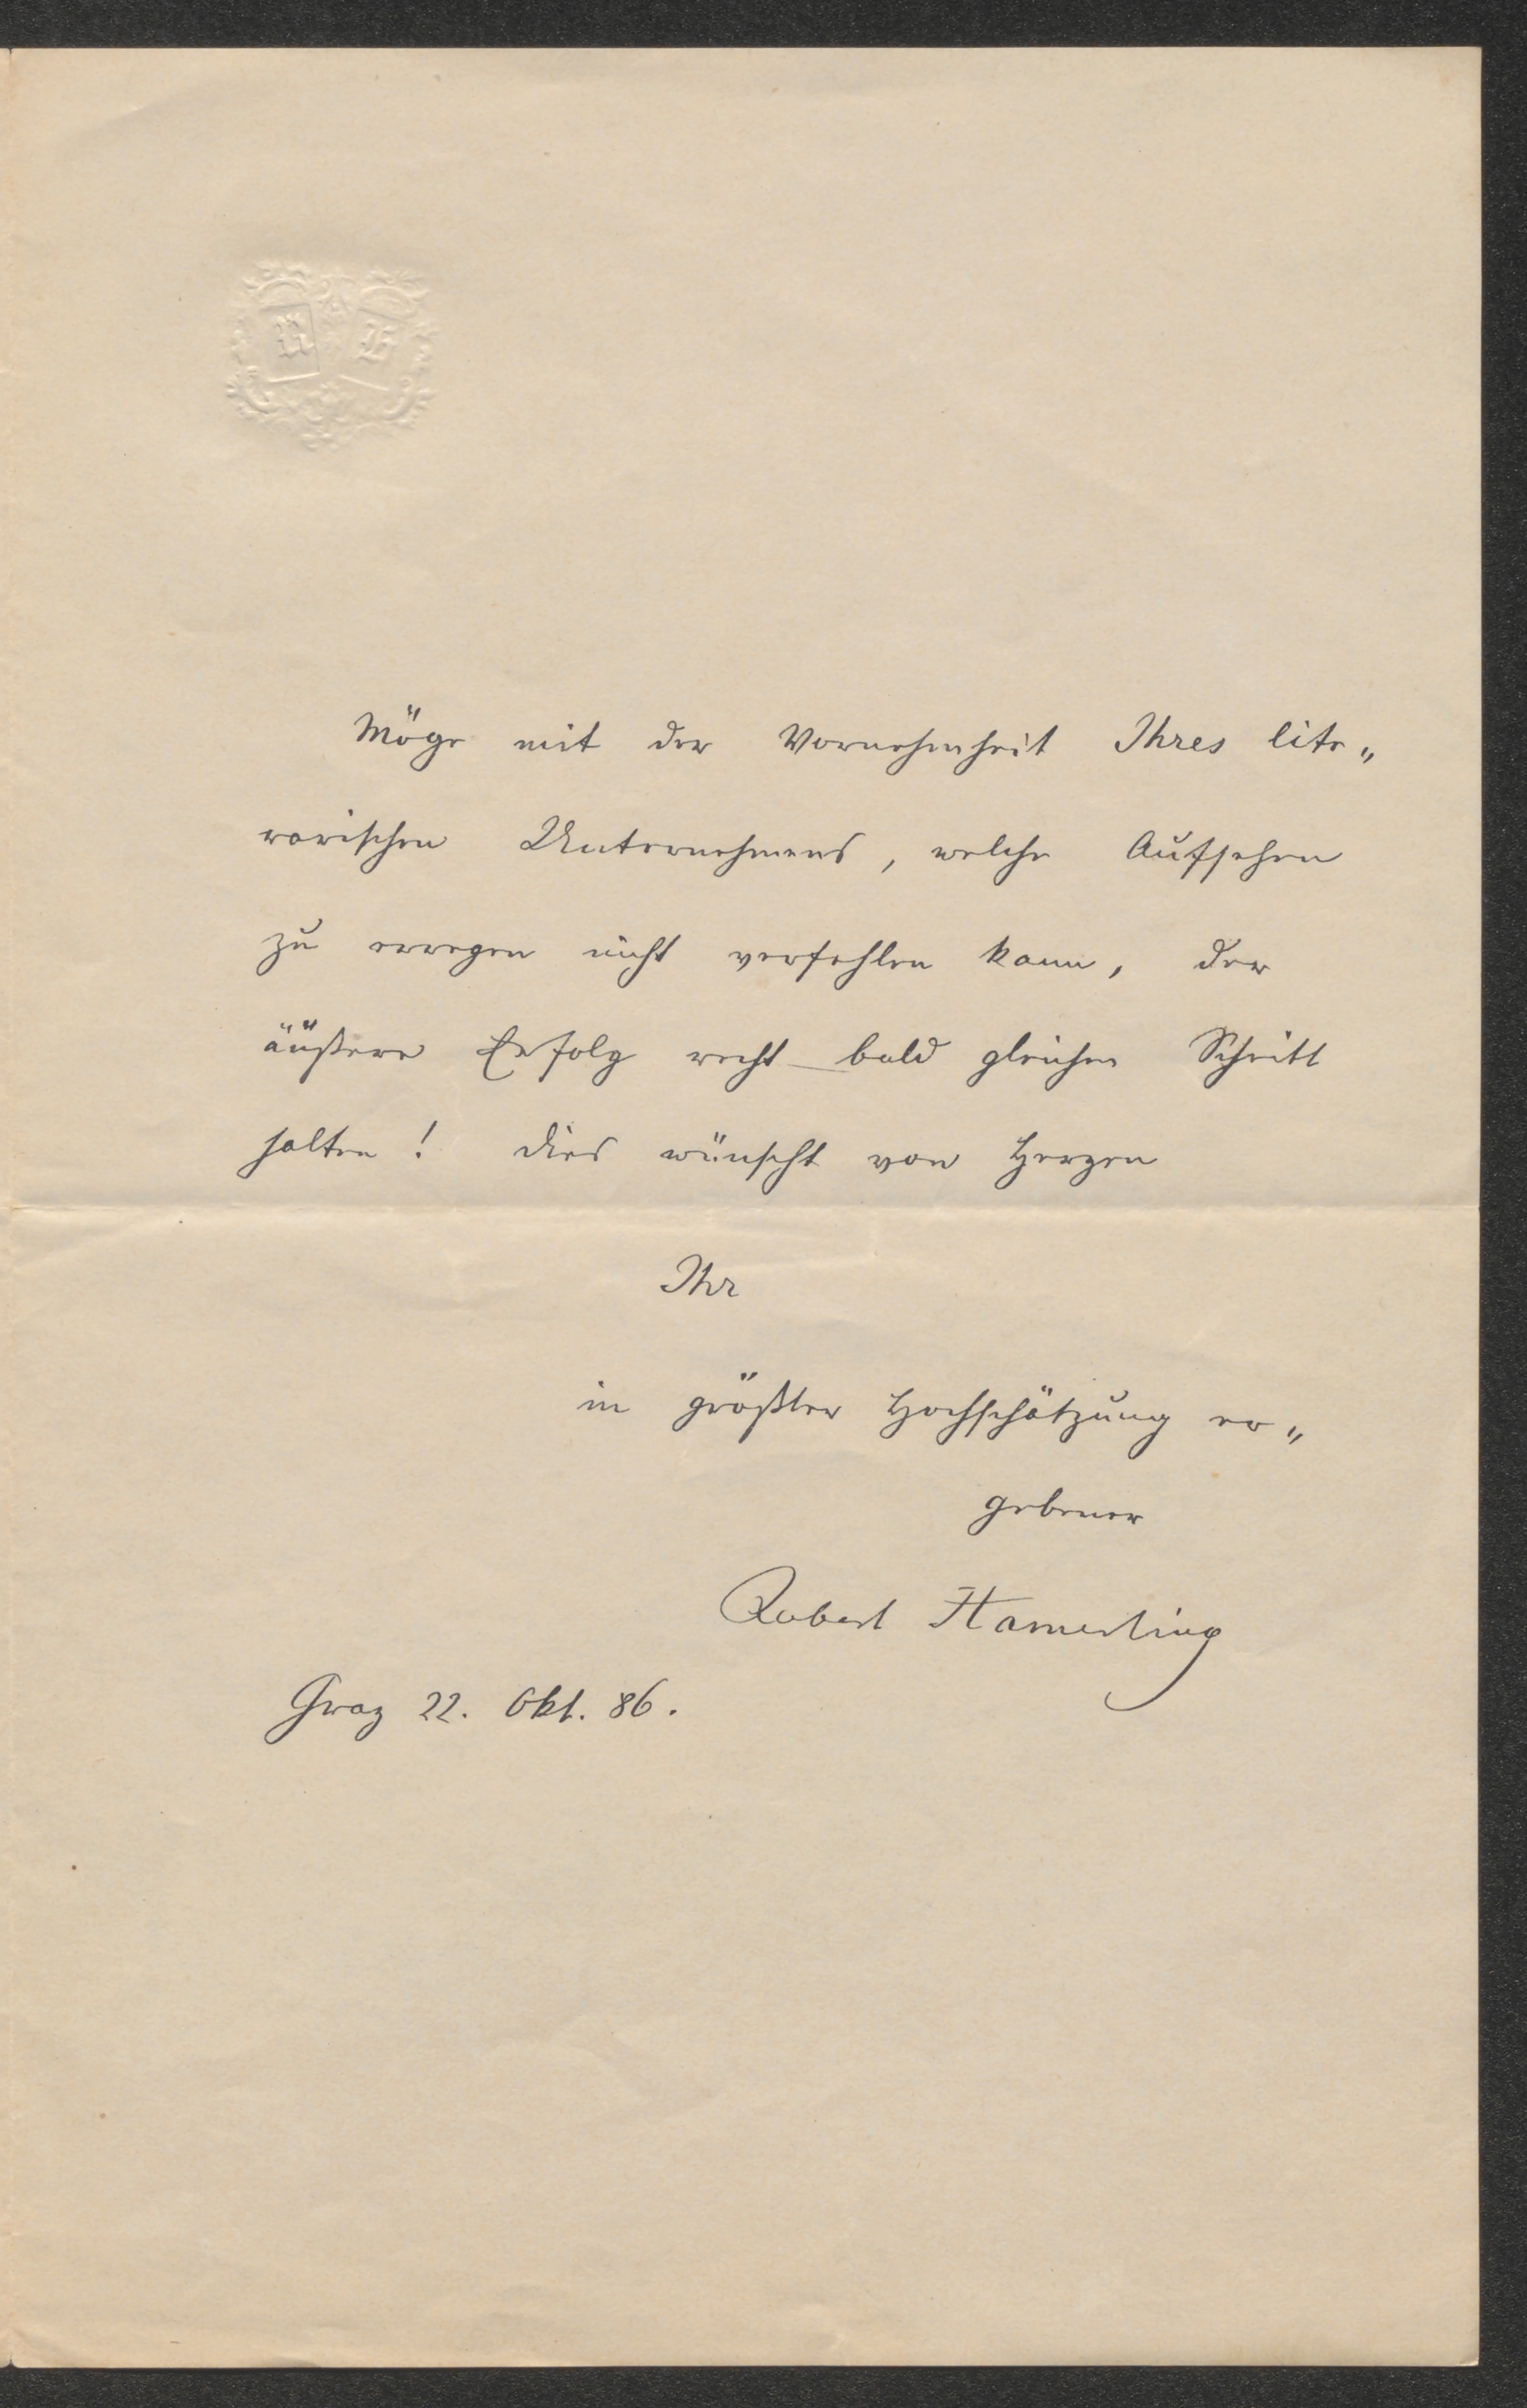 Möge mit der Vornehmheit Ihres lite„
rarischen Unternehmens, welche Aufsehen
zu erregen nicht verfehlen kann, der
äußere Erfolg recht bald gleichen Schritt
halten! Dies wünscht von Herzen
Ihr
in größter Hochschätzung er„
gebener
Robert Hamerling
Graz 22. Okt. 86.